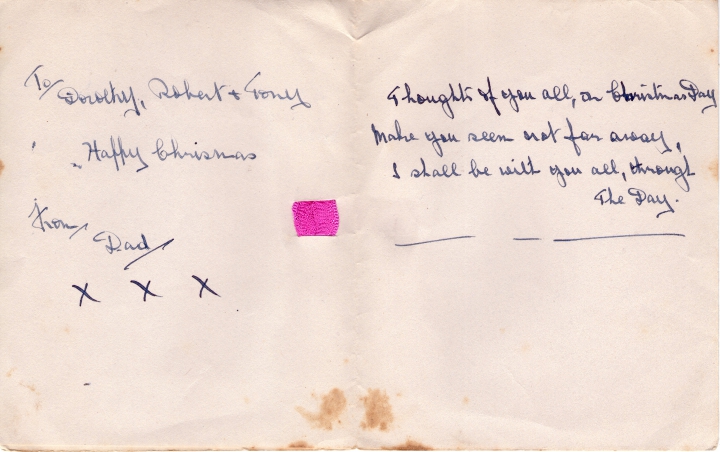 To/
Dorothy, Robert + Toney
Happy Chrismas
From/
Dad/
X X X
Thoughts of you all, on Christmas Day
Make you seem not far away,
I shall be with you all, through
The Day.